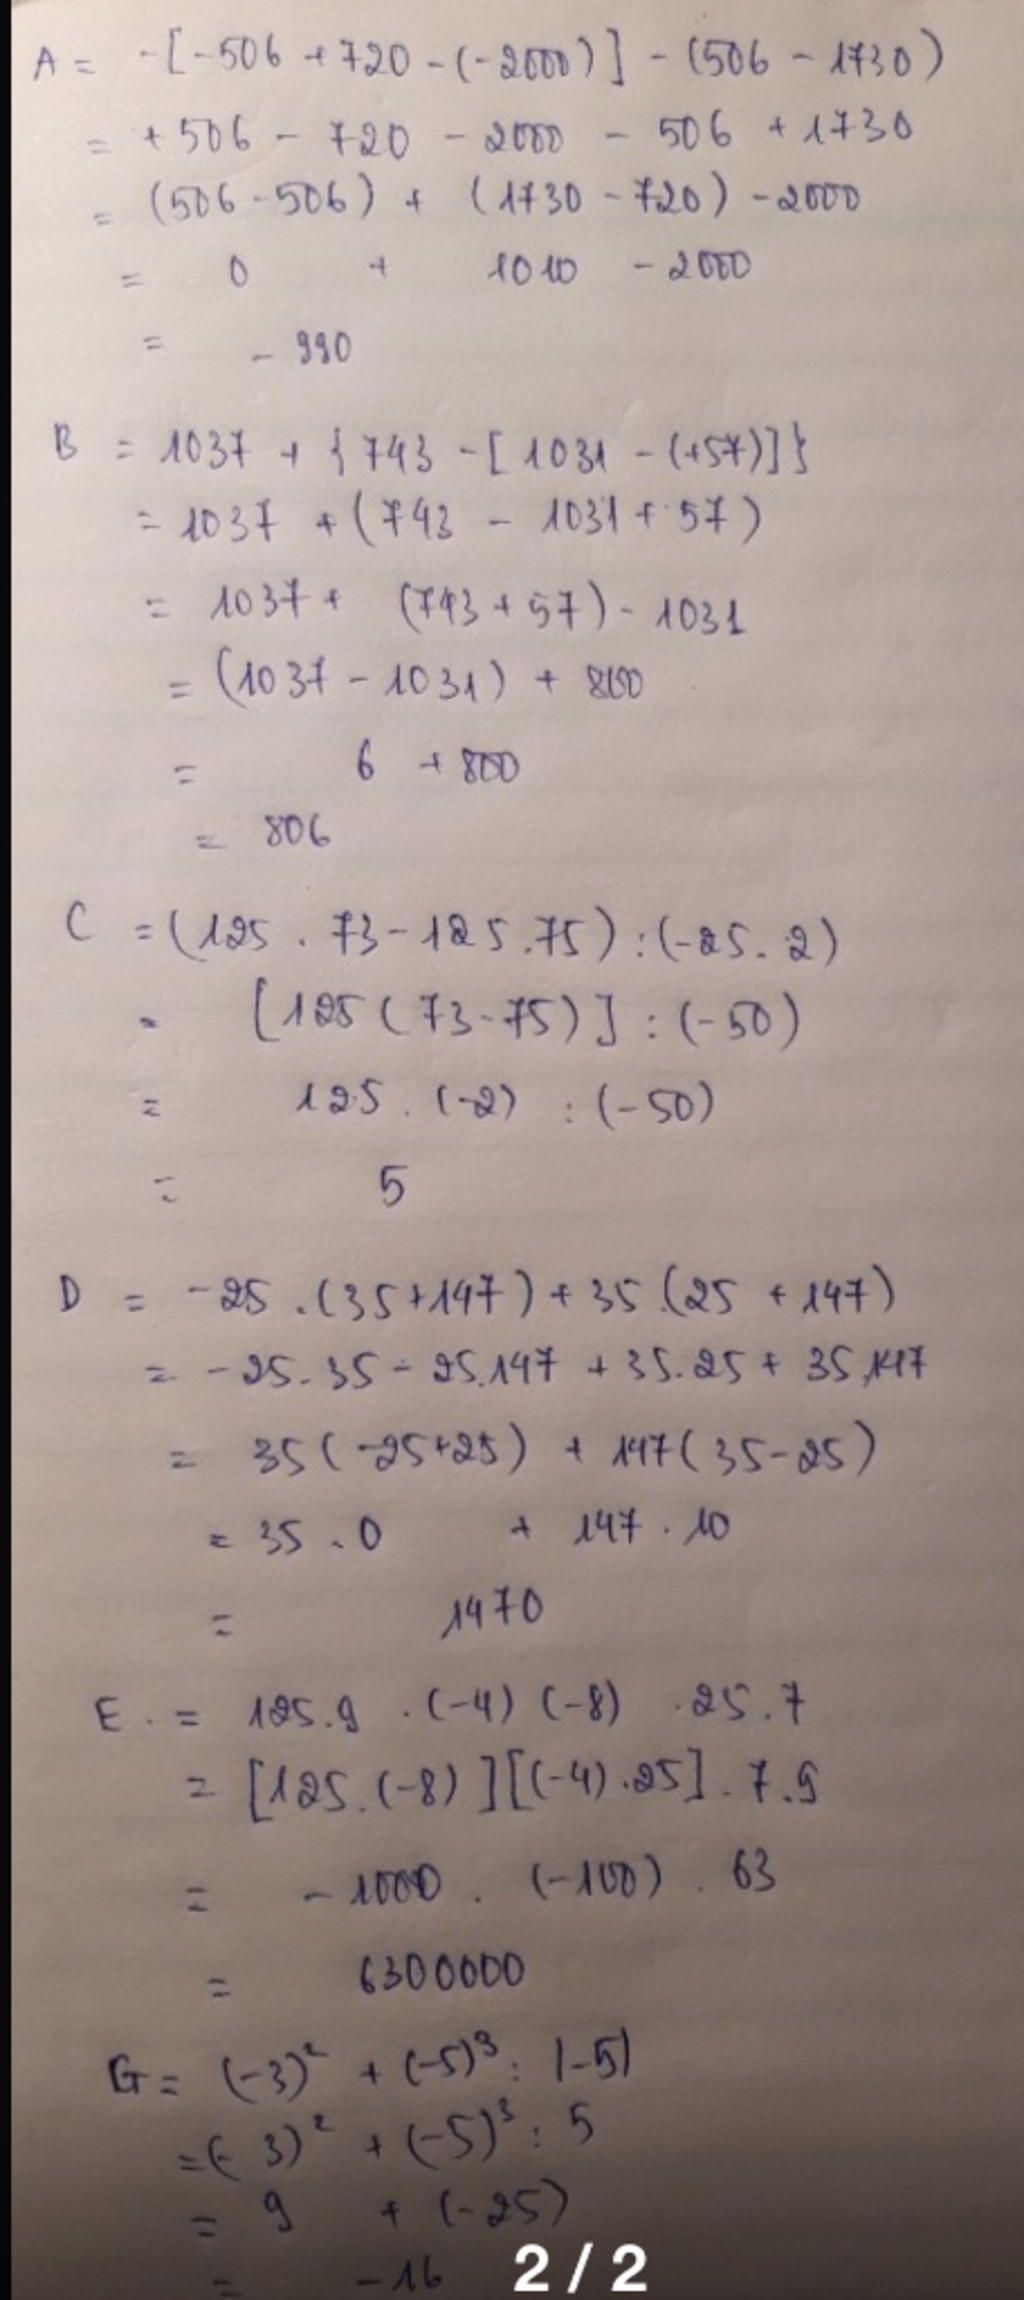 A = -[-506 + 720 - (-2000)] - (506 - 1730)
= +506 - 720 - 2000 - 506 + 1730
= (506 - 506) + (1730 - 720) - 2000
= 0 + 1010 - 2000
= - 990
B = 1037 + {743 - [1031 - (+57)]}
= 1037 + (743 - 1031 + 57)
= 1037 + (743 + 57) - 1031
= (1037 - 1031) + 800
= 6 + 800
= 806
C = (125 . 73 - 125 . 75) : (-25 . 2)
= [125 (73 - 75)] : (-50)
= 125 . (-2) : (-50)
= 5
D = -25 . (35 + 147) + 35 . (25 + 147)
= -25 . 35 - 25 . 147 + 35 . 25 + 35 . 147
= 35 (-25 + 25) + 147 (35 - 25)
= 35 . 0 + 147 . 10
= 1470
E . = 125 . 9 . (-4) (-8) . 25 . 7
= [125 . (-8)] [(-4) . 25] . 7 . 9
= -1000 . (-100) . 63
= 6300000
G = (-3)² + (-5)³ : |-5|
= (-3)² + (-5)³ : 5
= 9 + (-25)
= -16
2 / 2